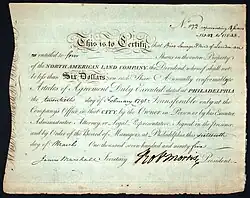 This is to Certify, that
is entitled to four Shares in the entire Property
of the NORTH AMERICAN LAND COMPANY; the Dividend whereof shall never
be less than Six Dollars on each Share Annually, conformably to
Articles of Agreement Duly Executed dated at PHILADELPHIA
the twentieth day of February 1795. Transferable only at the
Company's Office in that CITY by the Owner in Person or by his Executor
Administrator Attorney or Legal Representative. Signed in the presence
and by Order of the Board of Managers, at Philadelphia this sixteenth
day of March One thousand seven hundred and ninety five
James Marshall Secretary Rob Morris President